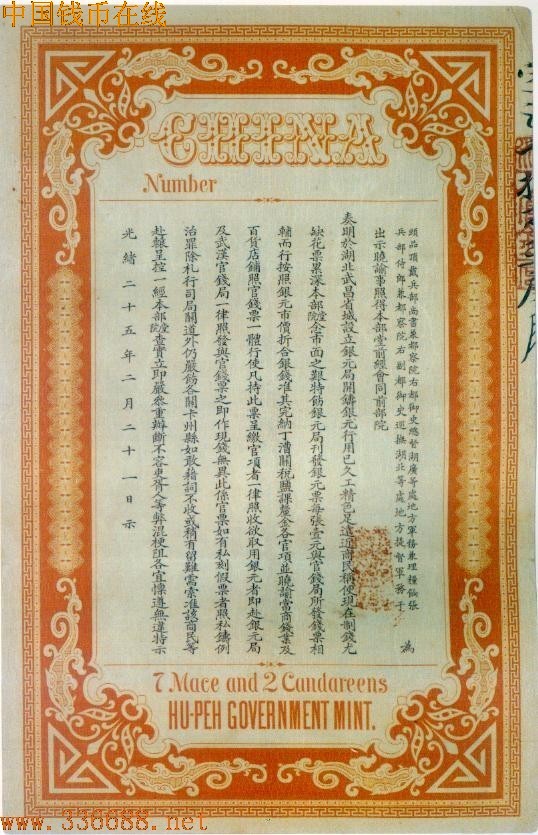 中国钱币在线
CHINA
Number
頭品頂戴兵部尚書兼都察院右都御史總督湖廣等處地方軍務兼理糧餉張
兵部侍郎兼都察院右副都御史巡撫湖北等處地方提督軍務于
為
出示曉諭事照得本部堂前經會同前部院
奏明於湖北武昌省城設立銀元局開鑄銀元行用已久工精色足遠近商民稱便現在制錢尤
缺花票累深本部堂院念市面之艱特飭銀元局刊發銀元票每張壹元與官錢局所發錢票相
輔而行按照銀元市價折合銀錢准其完納丁漕關稅鹽課釐金各官項並曉諭當商錢業及
百貨店鋪照官錢票一體行使凡持此票呈繳官項者一律照收欲取用銀元者即赴銀元局
及武漢官錢局一律照發與官錢票之即作現錢無異此係官票如有私刻假票者照私鑄例
治罪除札行司局關道外仍嚴飭各關卡州縣如敢藉詞不收或稍有留難需索准該商民等
赴轅呈控一經本部堂院查實立即嚴參重辦斷不容吏胥人等弊混梗阻各宜懍遵無違特示
光緒二十五年二月二十一日示
7 Mace and 2 Candareens
HU-PEH GOVERNMENT MINT.
www.330088.net